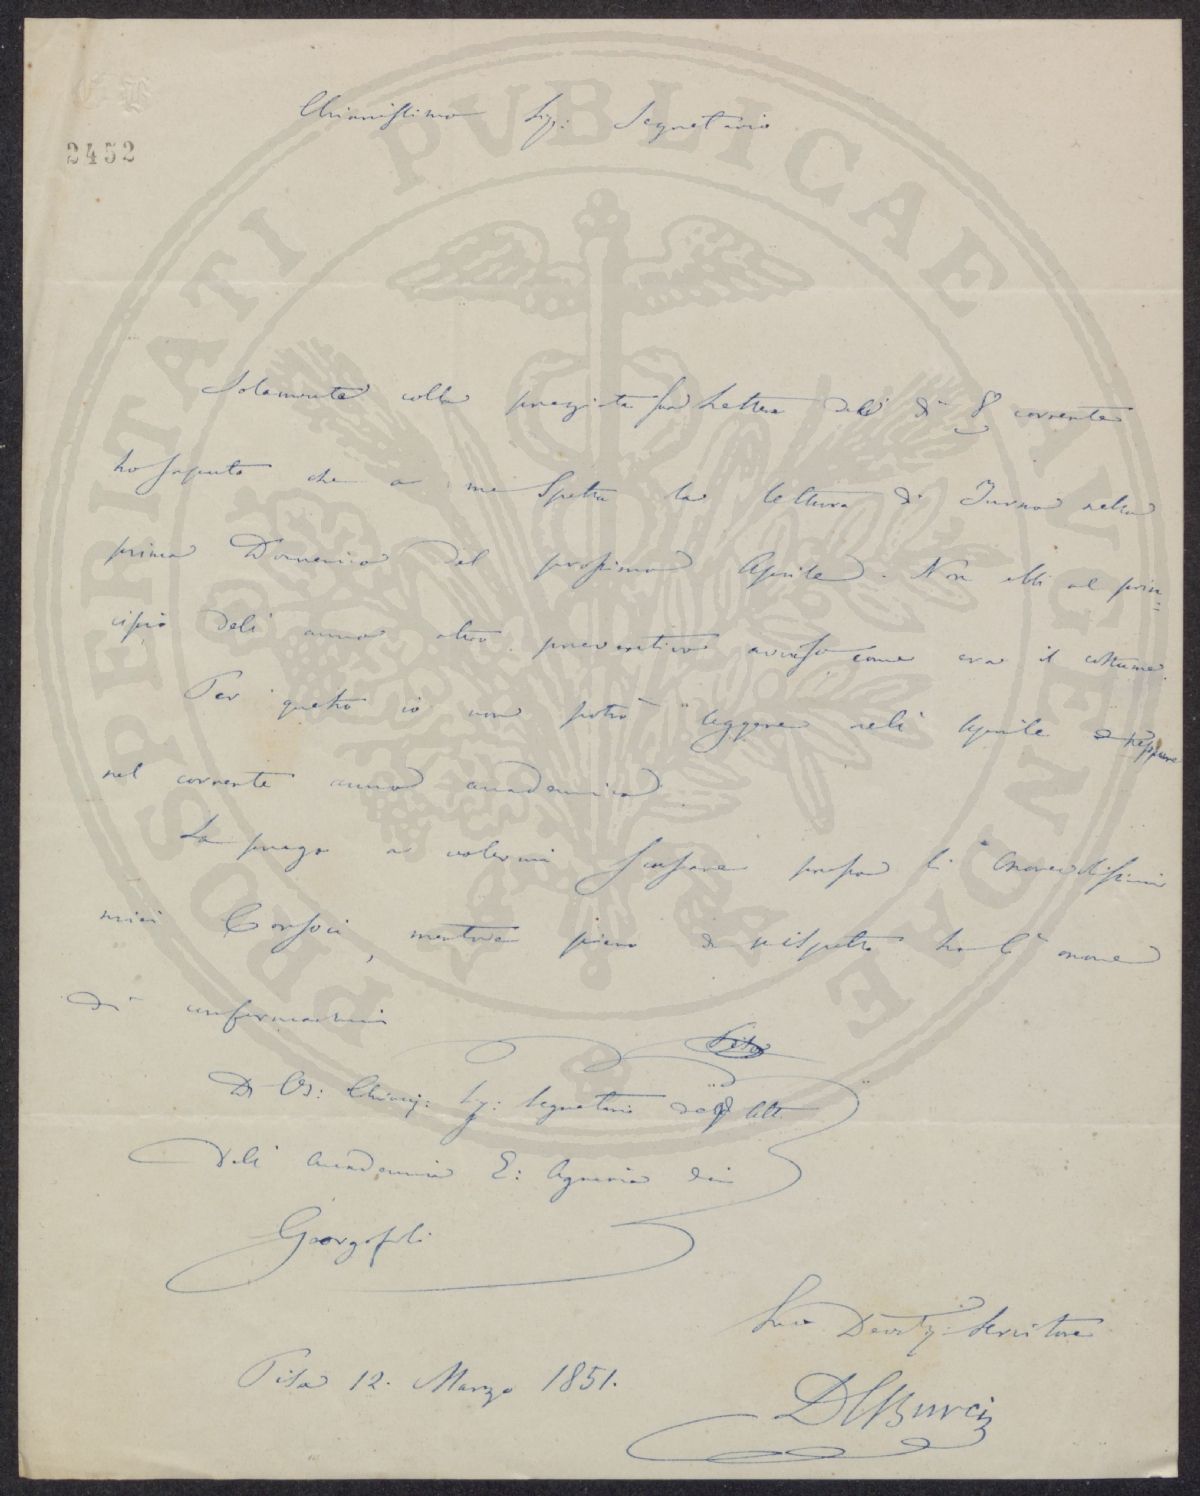 C B
2452
PROSPERITATI PUBLICAE AUGENDAE
Chiarissimo Sig: Segretario
Solamente colla pregiata sua Lettera del dì 8 corrente
ho saputo che a me spetta la lettura di Turno nella
prima Domenica del prossimo Aprile. Non ebbi al prin=
cipio dell' anno altro preventivo avviso come era il costume.
Per questo io non potrò leggere nell' Aprile neppure
nel corrente anno accademico.
La prego a volermi scusare presso li onorevolissimi
miei Consoci, mentre pieno di rispetto ho l' onore
di confermarmi
Pisa
Di VS: Chiariss: Sig: Segretario degli Atti
dell' Accademia E: Agraria dei
Georgofili
Suo Devotiss: Servitore
Pisa 12. Marzo 1851.
D C Burci